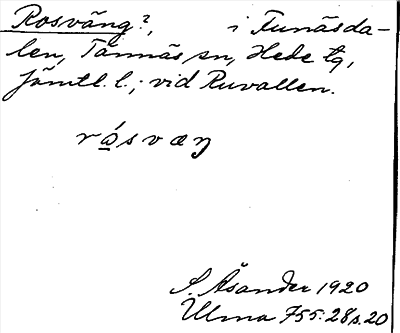 Rosväng?, i Funäsda-
len, Tännäs sn, Hede tg,
Jämtl. l.; vid Ruvallen.
rósvæŋ
S. Åsander 1920
Ulma 755:28 s. 20